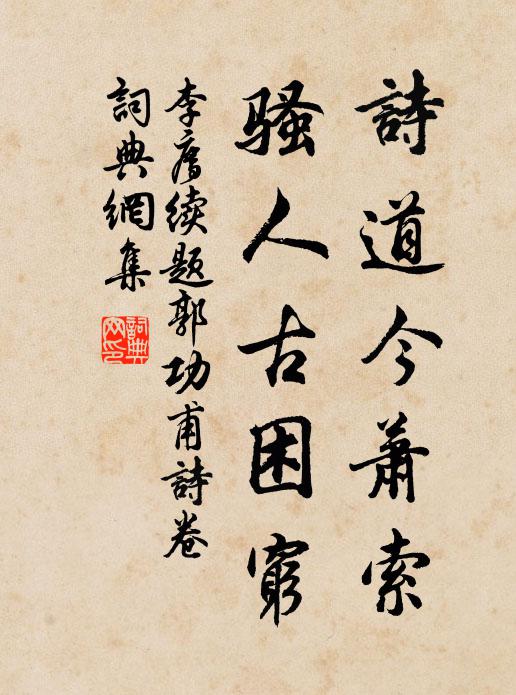 詩道今蕭索
騷人古困窮
李廌续题郭功甫詩卷
詞典網集
詞典网印